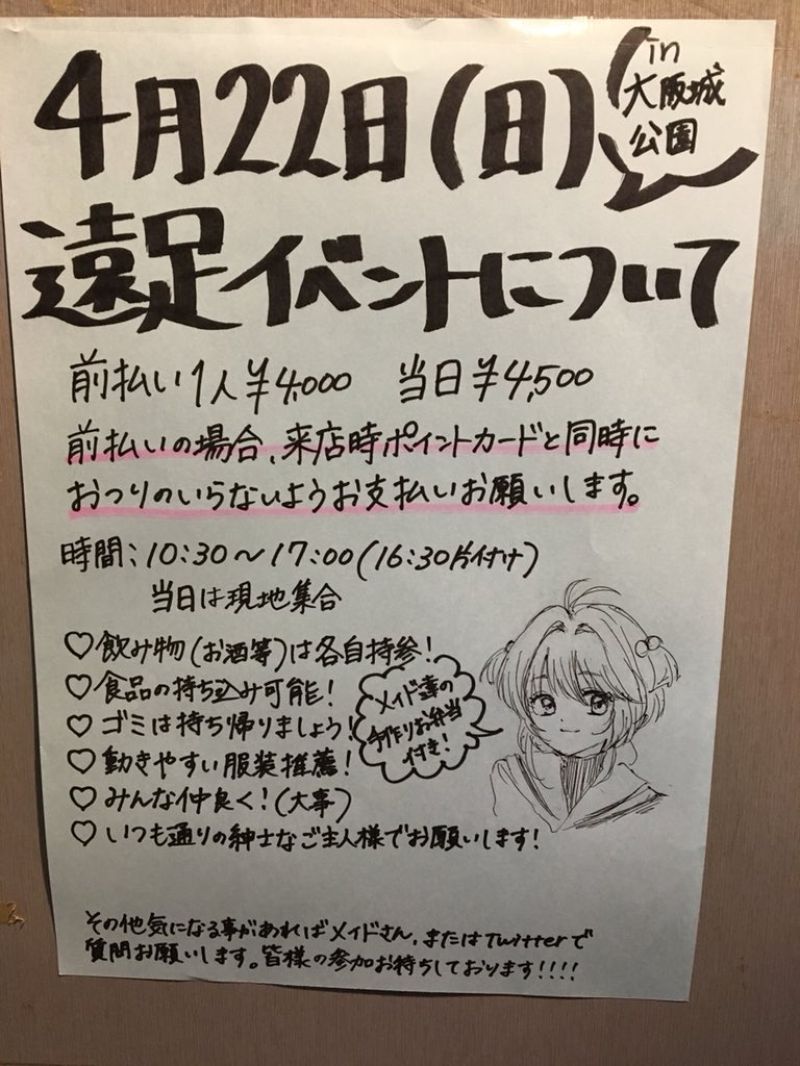 4月22日(日)
in
大阪城
公園
遠足イベントについて
前払い1人¥4,000 当日¥4,500
前払いの場合、来店時ポイントカードと同時に
おつりのいらないようお支払いお願いします。
時間:10:30〜17:00(16:30片付け)
当日は現地集合
♡飲み物(お酒等)は各自持参!
♡食品の持ち込み可能!
♡ゴミは持ち帰りましょう!
♡動きやすい服装推薦!
♡みんな仲良く!(大事)
♡いつも通りの紳士なご主人様でお願いします!
メイド達の
手作りお弁当
付き!
その他気になる事があればメイドさん、またはTwitterで
質問お願いします。皆様の参加お待ちしております!!!!